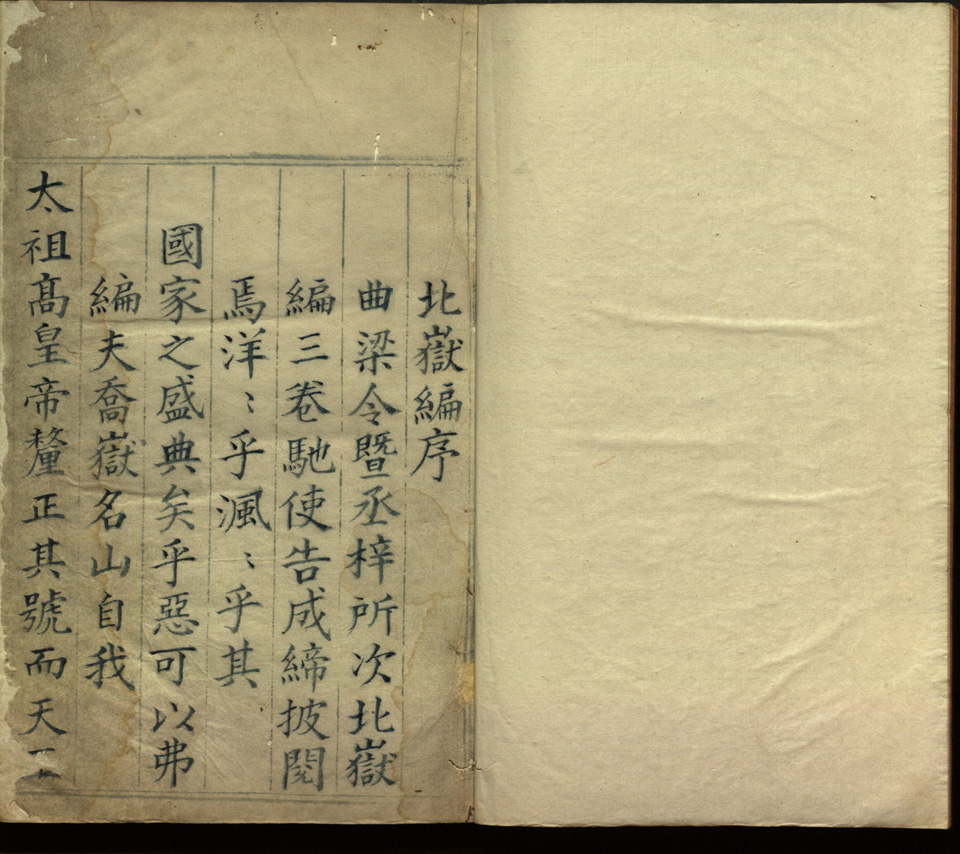 北嶽編序
曲梁令暨丞梓所次北嶽
編三卷馳使告成締披閱
焉洋〻乎渢〻乎其
國家之盛典矣乎惡可以弗
編夫喬嶽名山自我
太祖髙皇帝釐正其號而天